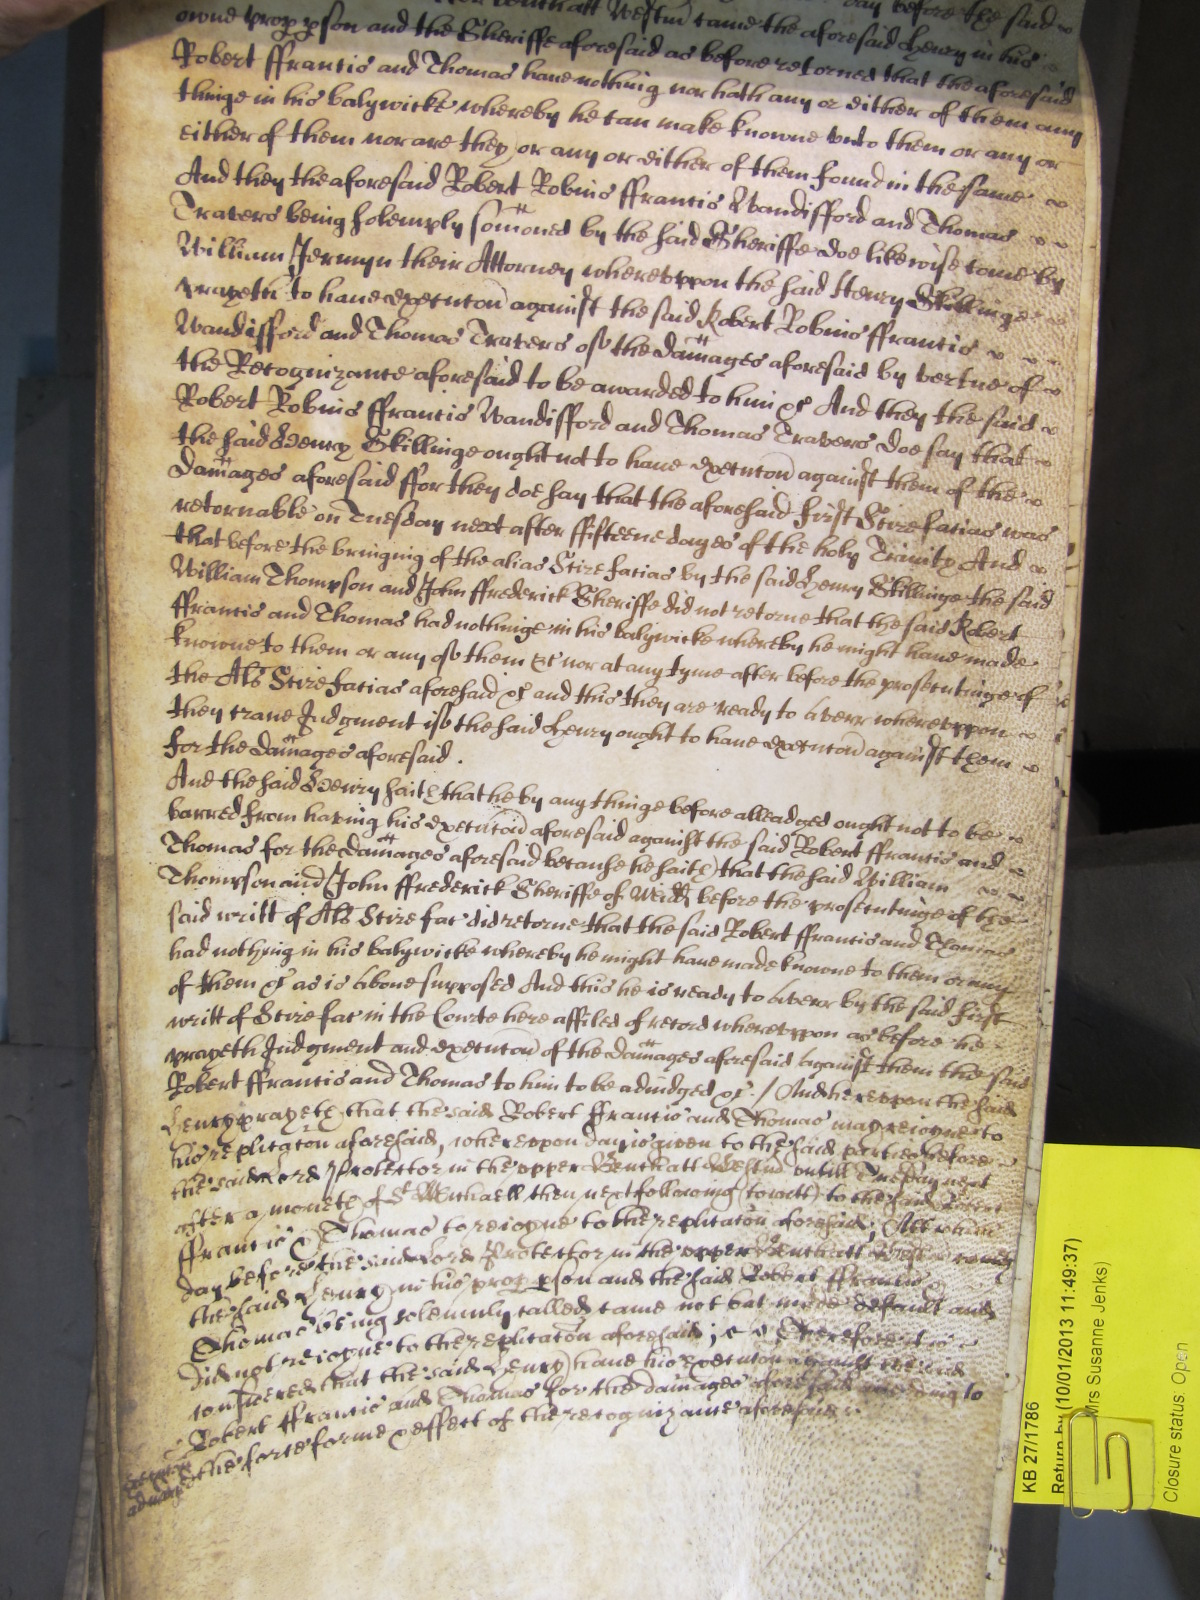 day before the said
att Westm came the aforesaid Henry in his
owne prop pson and the Sheriffe aforesaid as before retorned that the aforesaid
Robert ffrancis and Thomas have nothing nor hath any or either of them any
thinge in his balywicke whereby he can make knowne unto them or any or
either of them nor are they or any or either of them found in the same
And they the aforesaid Robert Robins ffrancis Wandisford and Thomas
Travers being solemply somoned by the said Sheriffe doe likewise come by
William Jermyn their Attorney whereuppon the said Henry Skillinge
prayeth to have execucon against the said Robert Robins ffrancis
Wandisford and Thomas Travers of the damages aforesaid by vertue of
the Recognizance aforesaid to be awarded to him &c And they the said
Robert Robins ffrancis Wandisford and Thomas Travers doe say that
the said Henry Skillinge ought not to have execucon against them of the
damages aforesaid ffor they doe say that the aforesaid first Scire facias was
retornable on Tuesday next after fifteene dayes of the holy Trinity And
that before the bringing of the alias Scire facias by the said Henry Skillinge the said
William Thompson and John ffrederick Sheriffe did not retorne that the said Robert
ffrancis and Thomas had nothinge in his balywicke whereby he might have made
knowne to them or any of them &c nor at any tyme after before the prosecutinge of
the Als Scire facias aforesaid &c and this they are ready to averr whereuppon
they crave Judgment if the said Henry ought to have execucon against them
for the damages aforesaid .
And the said Henry saith that he by any thinge before alleadged ought not to be
barred from having his execucon aforesaid against the said Robert ffrancis and
Thomas for the damages aforesaid because he saith that the said William
Thompson and John ffrederick Sheriffe of Midd before the prosecutinge of the
said writt of Als Scire fac did retorne that the said Robert ffrancis and Thomas
had nothing in his balywicke whereby he might have made knowne to them or any
of them &c as is above supposed And this he is ready to averr by the said first
writt of Scire fac in the Courte here affiled of record whereuppon as before he
prayeth Judgment and execucon of the damages aforesaid against them the said
Robert ffrancis and Thomas to him to be adiudged &c ./ And hereuppon the said
Henry prayeth that the said Robert ffrancis and Thomas may reioyne to
his replicacon aforesaid, whereuppon day is given to the said parties before
the said Lord Protector in the upper Bench att Westm untill Tuesday next
after a moneth of St Michaell then next following (to witt) to the said Robert
ffrancis & Thomas to reioyne to the replicacon aforesaid; Att which
day before the said Lord Protector in the upper Bench att Westm cometh
the said Henry in his prop pson and the said Robert ffrancis &
Thomas being solemnly called came not but made default and
did not reioyne to the replicacon aforesaid; Therefore it is
considered that the said Henry have his execucon against the said
Robert ffrancis and Thomas for the damages aforesaid according to
the force forme & effect of the recognizance aforesaid
KB 27/1786
Return by (10/01/2013 11:49:37)
Mrs Susanne Jenks)
Closure status: Open